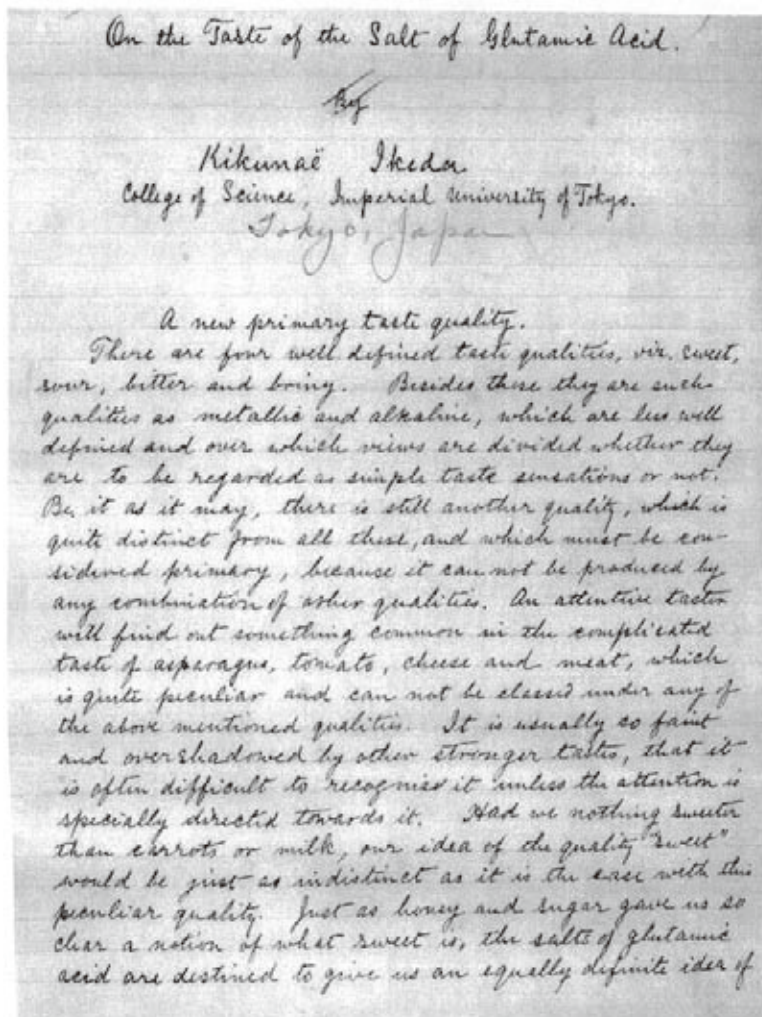 On the Taste of the Salt of Glutamic Acid.
By
Kikunaë Ikeda
College of Science, Imperial University of Tokyo.
Tokyo, Japan
A new primary taste quality.
There are four well defined taste qualities, viz. sweet,
sour, bitter and briny. Besides these they are such
qualities as metallic and alkaline, which are less well
defined and over which views are divided whether they
are to be regarded as simple taste sensations or not.
Be it as it may, there is still another quality, which is
quite distinct from all these, and which must be con-
sidered primary, because it can not be produced by
any combination of other qualities. An attentive taster
will find out something common in the complicated
taste of asparagus, tomato, cheese and meat, which
is quite peculiar and can not be classed under any of
the above mentioned qualities. It is usually so faint
and overshadowed by other stronger tastes, that it
is often difficult to recognise it unless the attention is
specially directed towards it. Had we nothing sweeter
than carrots or milk, our idea of the quality "sweet"
would be just as indistinct as it is the case with this
peculiar quality. Just as honey and sugar gave us so
clear a notion of what sweet is, the salts of glutamic
acid are destined to give us an equally definite idea of